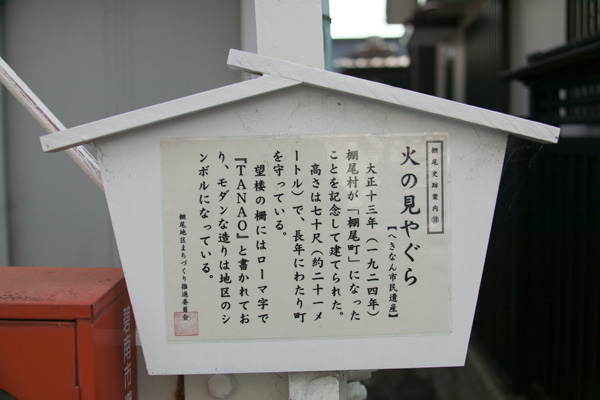 棚尾史跡案内⑱
火の見やぐら
【へきなん市民遺産】
大正十三年（一九二四年）
棚尾村が「棚尾町」になった
ことを記念して建てられた。
高さは七十尺（約二十一メ
ートル）で、長年にわたり町
を守っている。
望楼の柵にはローマ字で
『TANAO』と書かれてお
り、モダンな造りは地区のシ
ンボルになっている。
棚尾地区まちづくり推進委員会
碧南市